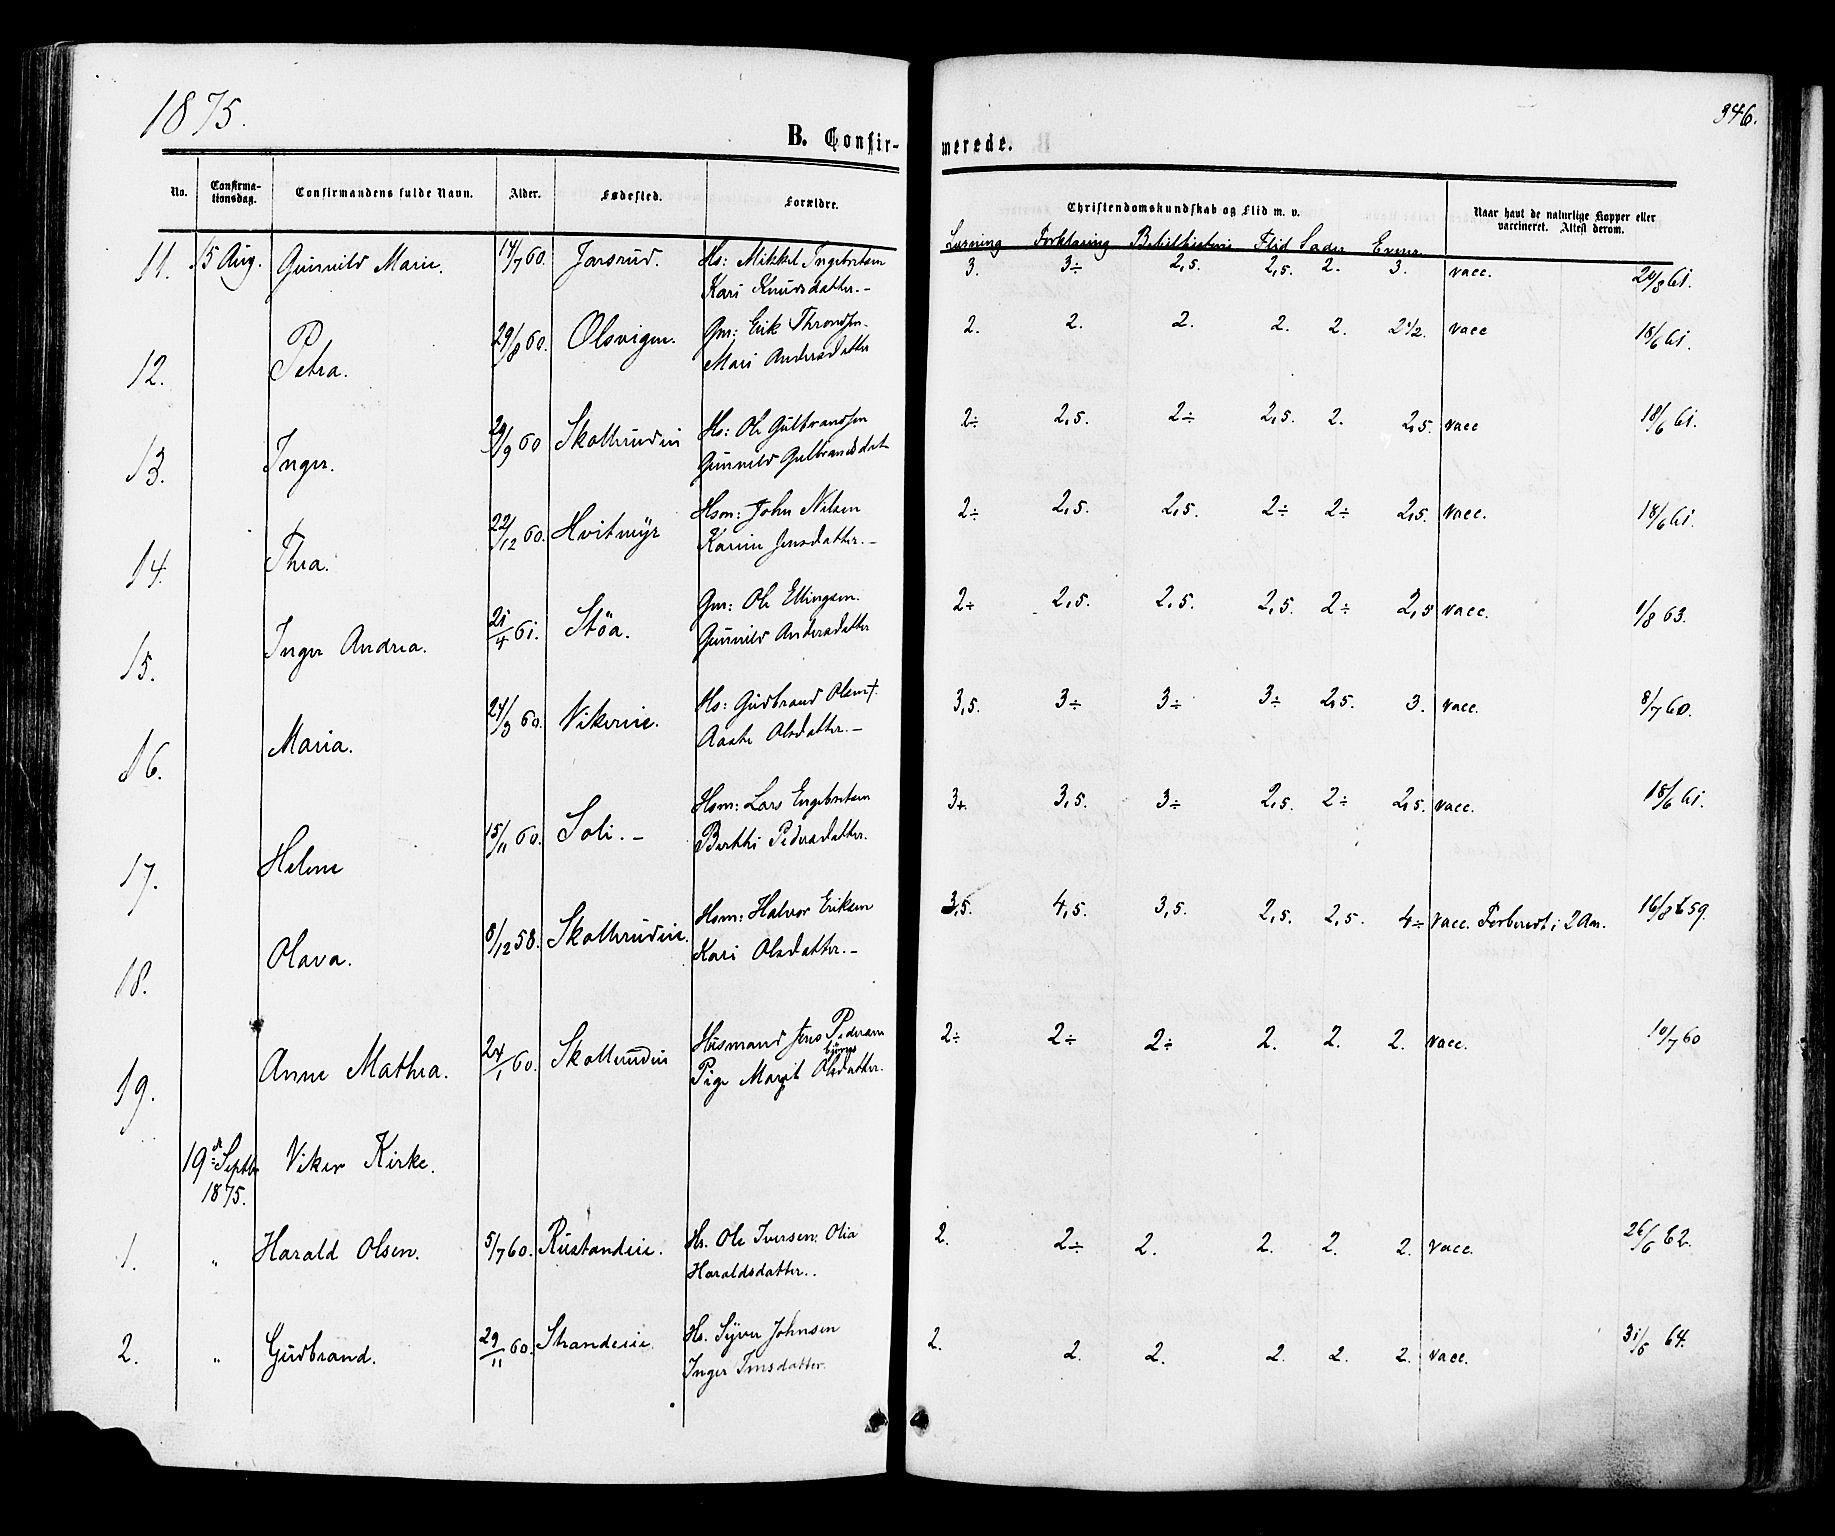 1875.
346.
B. Confir-
merede.
No.
Confirma-
tionsdag.
Confirmandens fulde Navn.
Alder.
Fødested.
Forældre.
Christendomskundskab og Flid m. v.
Naar havt de naturlige Kopper eller
vaccineret. Attest derom.
Læsning Forklaring Bibelhistorie Flid Sæder
11. 15 Aug. Gunnild Marie. 17/7 60. Jarsrud. Hs: Mikkel Ingebretsen
Kari Knudsdatter.-
3. 3÷ 2,5. 2,5. 2. 3. vacc. 20/8 61.
12. Petra. 29/8 60. Olsvigen. Gm: Erik Throndsen.
Mari Andersdatter
2. 2. 2. 2. 2. 2 1/2. vacc 18/6 61.
13. Inger. 29/9 60 Skollerudeie Hs: Ole Gulbrandsen
Gunnild Gulbrandsdat
2÷ 2,5. 2÷ 2,5. 2. 2,5. vacc 18/6 61.
14. Thea. 22/12 60. Hvitmyr Hsm: John Nilsen
Karin Jensdatter.-
2÷ 2,5. 2,5. 2÷ 2÷ 2,5. vacc. 18/6 61.
15. Inger Andrea. 21/4 61. Støa. Gm: Ole Ellingsen.
Gunnild Andersdatter
2÷ 2,5. 2,5. 2,5. 2÷ 2,5 vacc. 1/8 63.
16. Maria. 24/3 60. Vikereie. Hs: Gudbrand Olsen†.
Aaste Olsdatter.-
3,5. 3÷ 3÷ 3÷ 2,5. 3. vacc. 8/7 60.
17. Helene 15/11 60. Soli.- Hsm: Lars Engebretsen
Berthe Pedersdatter.
3+ 3,5. 3÷ 2,5. 2÷ 2,5. vacc. 18/6 61.
18. Olava. 8/12 58. Skollerudeie. Hsm: Halvor Eriksen
Kari Olsdatter.-
3,5. 4,5. 3,5. 2,5. 2,5. 4÷ vacc. Forberedt i 2 Aar. 16/8 59.
19. Anne Mathea. 24/1 60. Skollerudeie Husmand Jens Pedersen
Pige Margit Olsdatter.
2÷ 2÷ 2÷ 2. 2. 2. vacc. 10/7 60
19de Septbr Viker Kirke.
1875.
1. " Harald Olsen. 5/7 60. Rustandeie. Hs. Ole Iversen. Olia
Haraldsdatter..
2. 2÷ 2. 2. 2. 2. vacc. 26/6 62.
2. " Gudbrand. 29/11 60. Strandeeie. Hs. Syver Johnsen
Inger Jensdatter.
2. 2. 2. 2. 2. 2. vacc. 31/5 64.